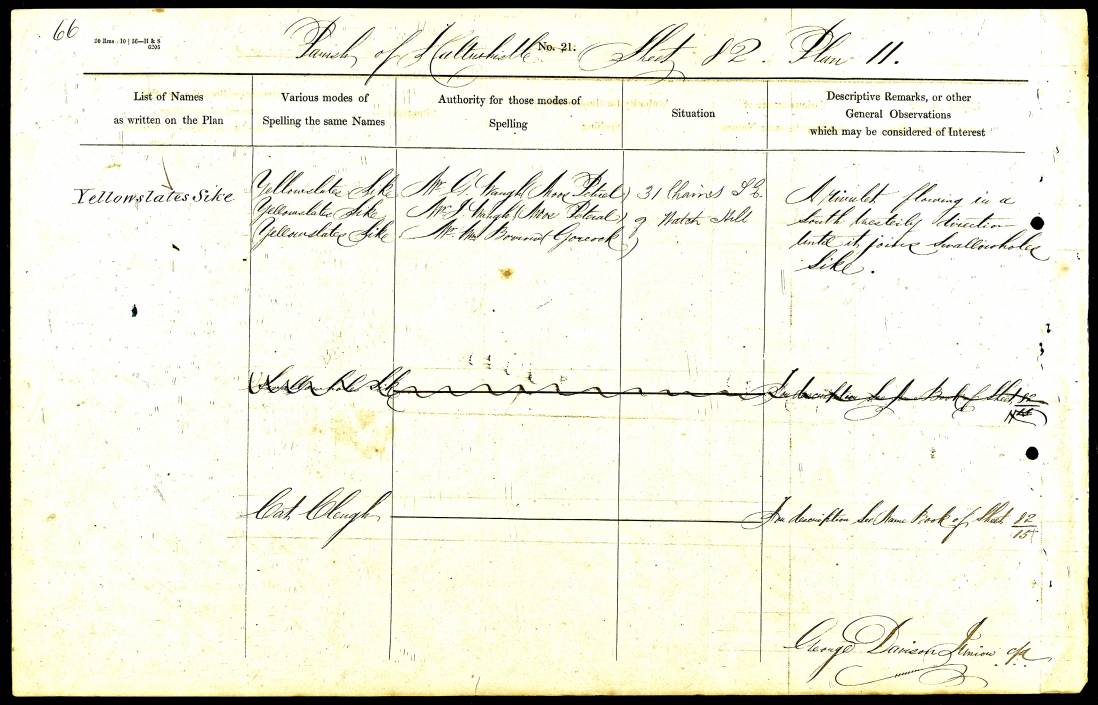 66
20 Rms : 10 | 56—H & S
6205
Parish of Haltwhistle No. 21. Sheet 82. Plan 11.
List of Names
as written on the Plan
Various modes of
Spelling the same Names
Authority for those modes of
Spelling
Situation
Descriptive Remarks, or other
General Observations
which may be considered of Interest
Yellowslates Sike
Yellowslates Sike
Yellowslates Sike
Yellowslates Sike
Mr. G. Waugh
Mr. J. Waugh
Mr. Wm
31 Chains S.E.
of Watch Hill
A rivulet flowing in a
south westerly direction
until it joins Swallowholes
Sike.
Swallowhole Sike
For description See Name Book of Sheet 82
Cat Cleugh
For description See Name Book of Sheet 82
15
George Davison Junior c/a